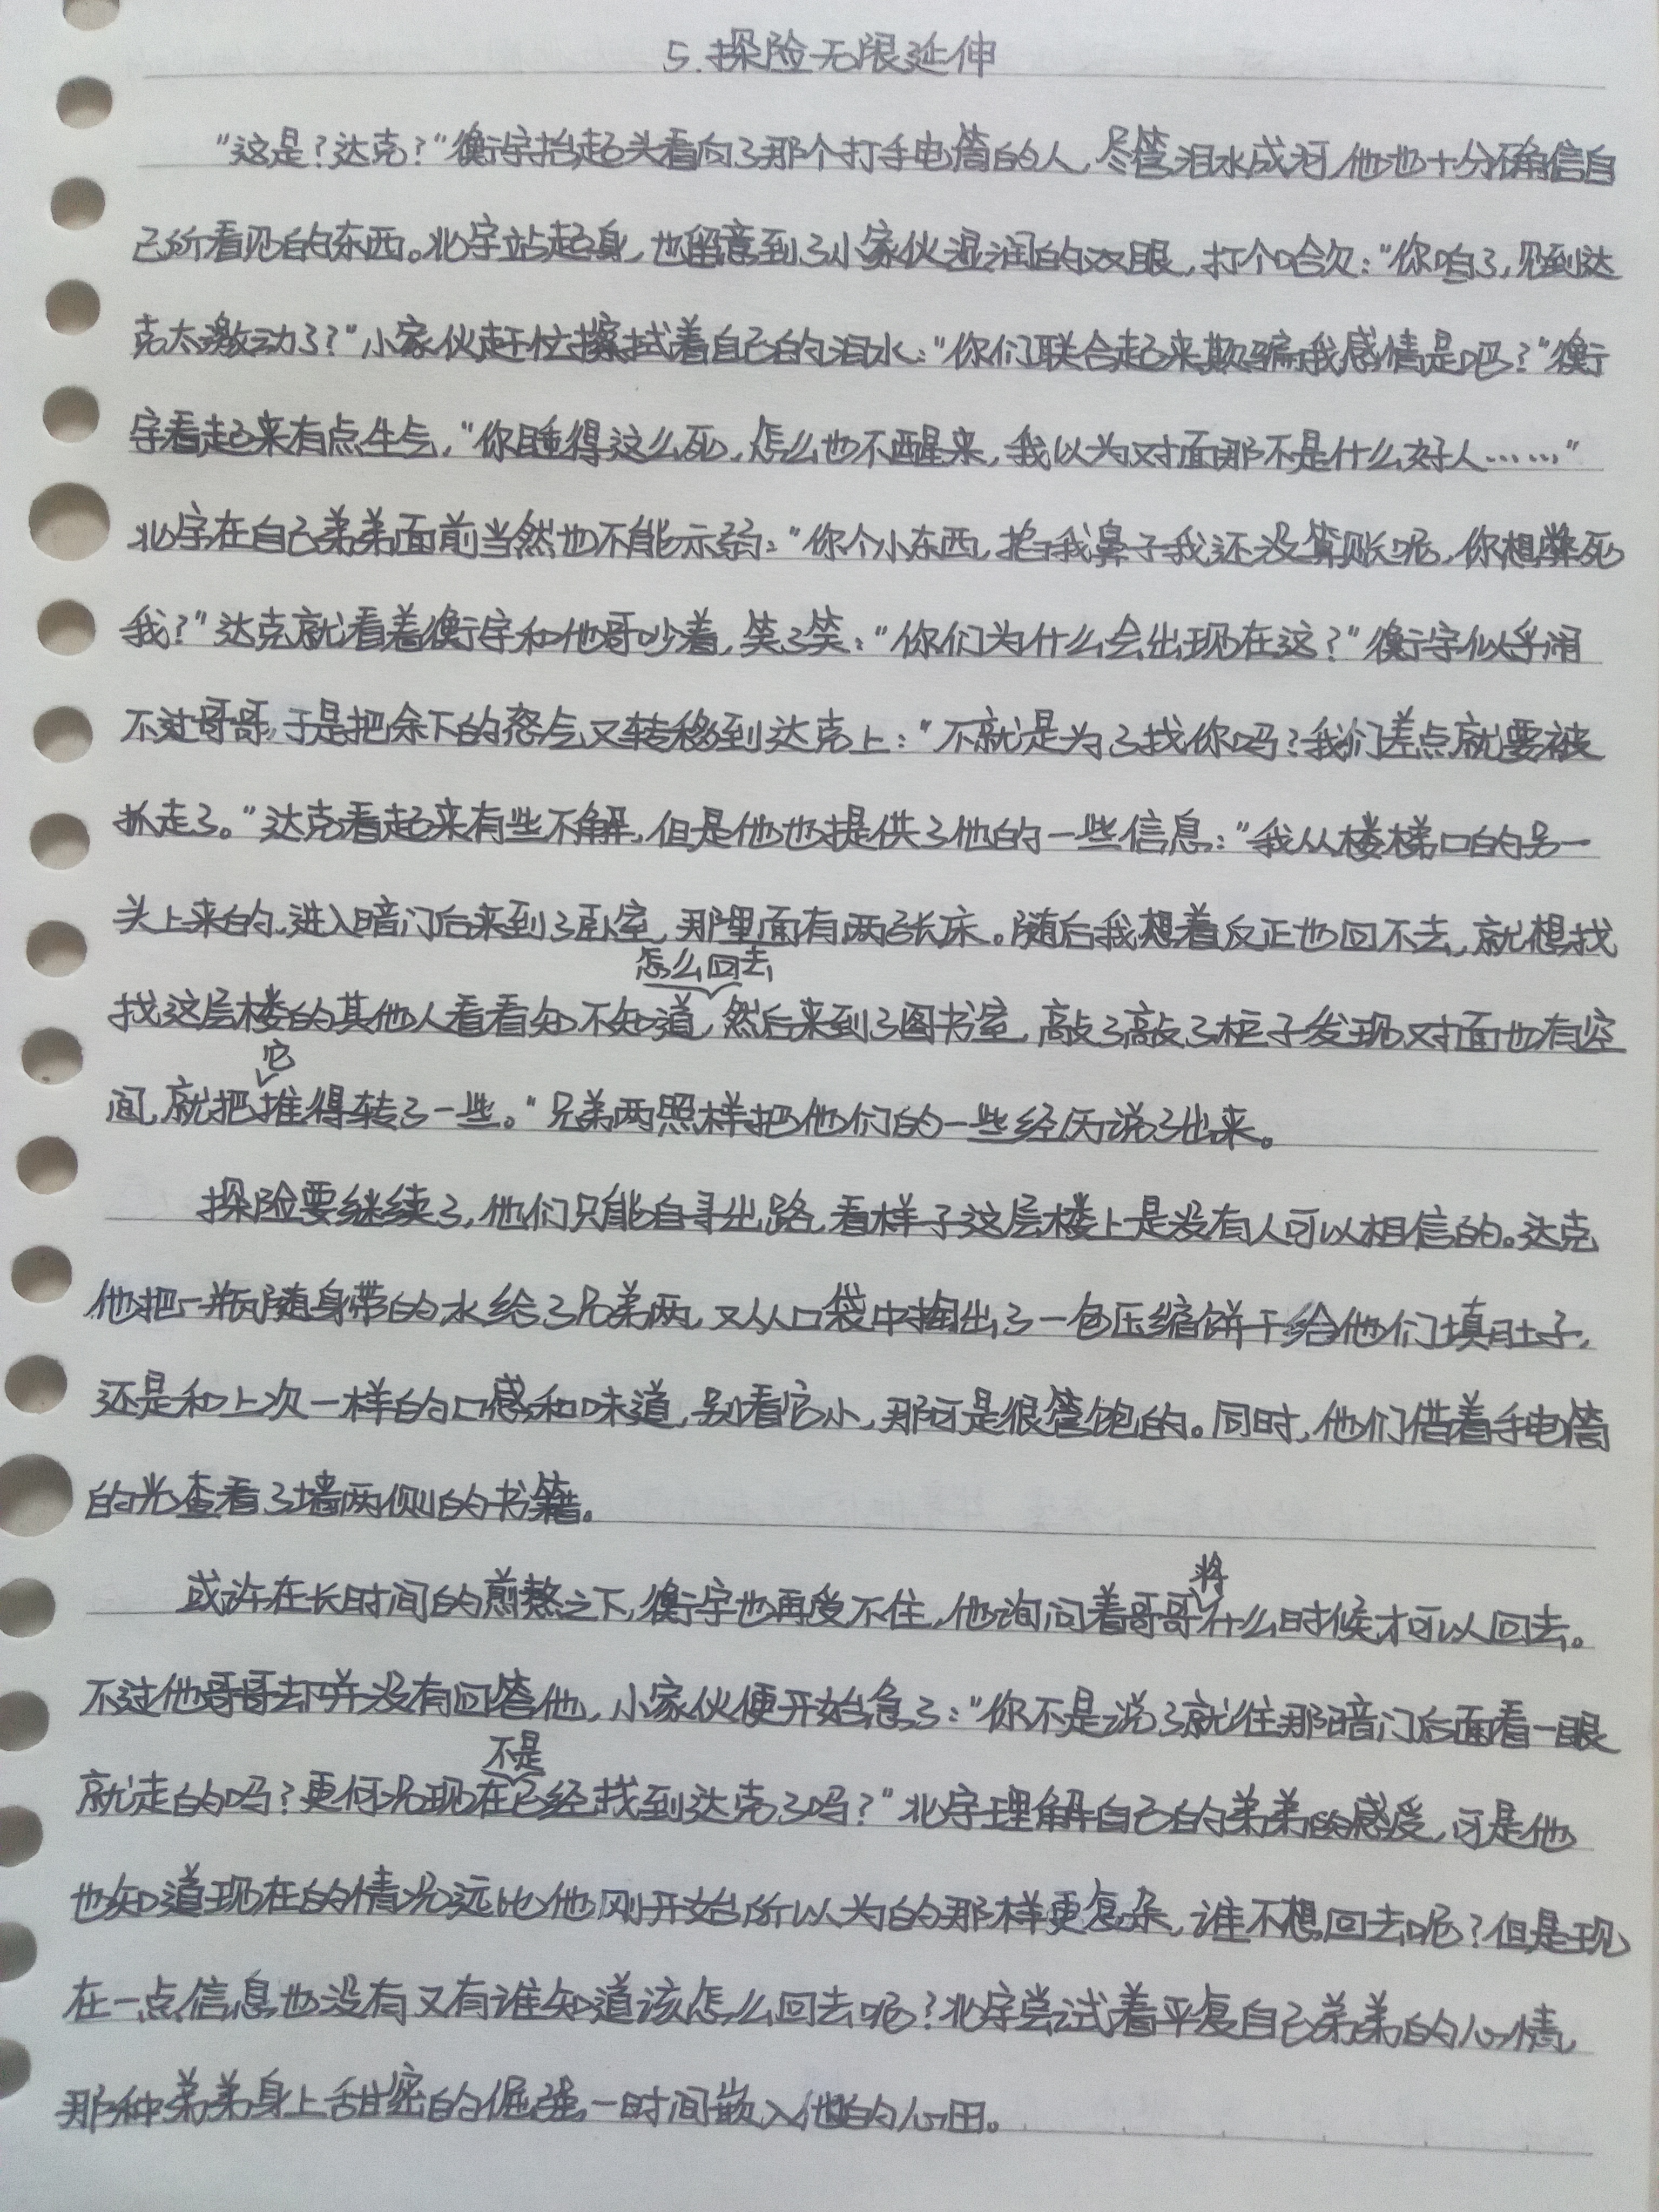 5.探险无限延伸
"这是?达克?"衡宇抬起头看向了那个打手电筒的人,尽管泪水成河,他也十分确信自
己所看见的东西。北宇站起身,也留意到了小家伙湿润的双眼,打个哈欠:"你咱了,见到达
克太激动了?"小家伙赶忙擦拭着自己的泪水:"你们联合起来欺骗我感情是吧?"衡
宇看起来有点生气,"你睡得这么死,怎么也不醒来,我以为对面那不是什么好人……"
北宇在自己弟弟面前当然也不能示弱:"你个小东西,捂我鼻子我还没算账呢,你想弊死
我?"达克就看着衡宇和他哥吵着,笑了笑:"你们为什么会出现在这?"衡宇似乎闹
不过哥哥,于是把余下的怒气又转移到达克上:"不就是为了找你吗?我们差点就要被
抓走了。"达克看起来有些不解,但是他也提供了他的一些信息:"我从楼梯口的另一
头上来的,进入暗门后来到了卧室,那里面有两张床。随后我想着反正也回不去,就想找
怎么回去
找这层楼的其他人看看知不知道,然后来到了图书室,敲了敲了柜子发现对面也有空
它
间,就把推得转了一些。"兄弟两照样把他们的一些经历说了出来。
探险要继续了,他们只能自寻出路,看样子这层楼上是没有人可以相信的。达克
他把一瓶随身带的水给了兄弟两,又从口袋中掏出了一包压缩饼干给他们填肚子,
还是和上次一样的口感和味道,别看它小,那可是很管饱的。同时,他们借着手电筒
的光查看了墙两侧的书籍。
将
或许在长时间的煎熬之下,衡宇也再受不住,他询问着哥哥什么时候才可以回去。
不过他哥哥却并没有回答他,小家伙便开始急了:"你不是说了就往那暗门后面看一眼
不是
就走的吗?更何况现在已经找到达克了吗?"北宇理解自己的弟弟的感受,可是他
也知道现在的情况远比他刚开始所以为的那样更复杂,谁不想回去呢?但是现
在一点信息也没有又有谁知道该怎么回去呢?北宇尝试着平复自己弟弟的心情,
那种弟弟身上甜密的倔强一时间嵌入他的心田。